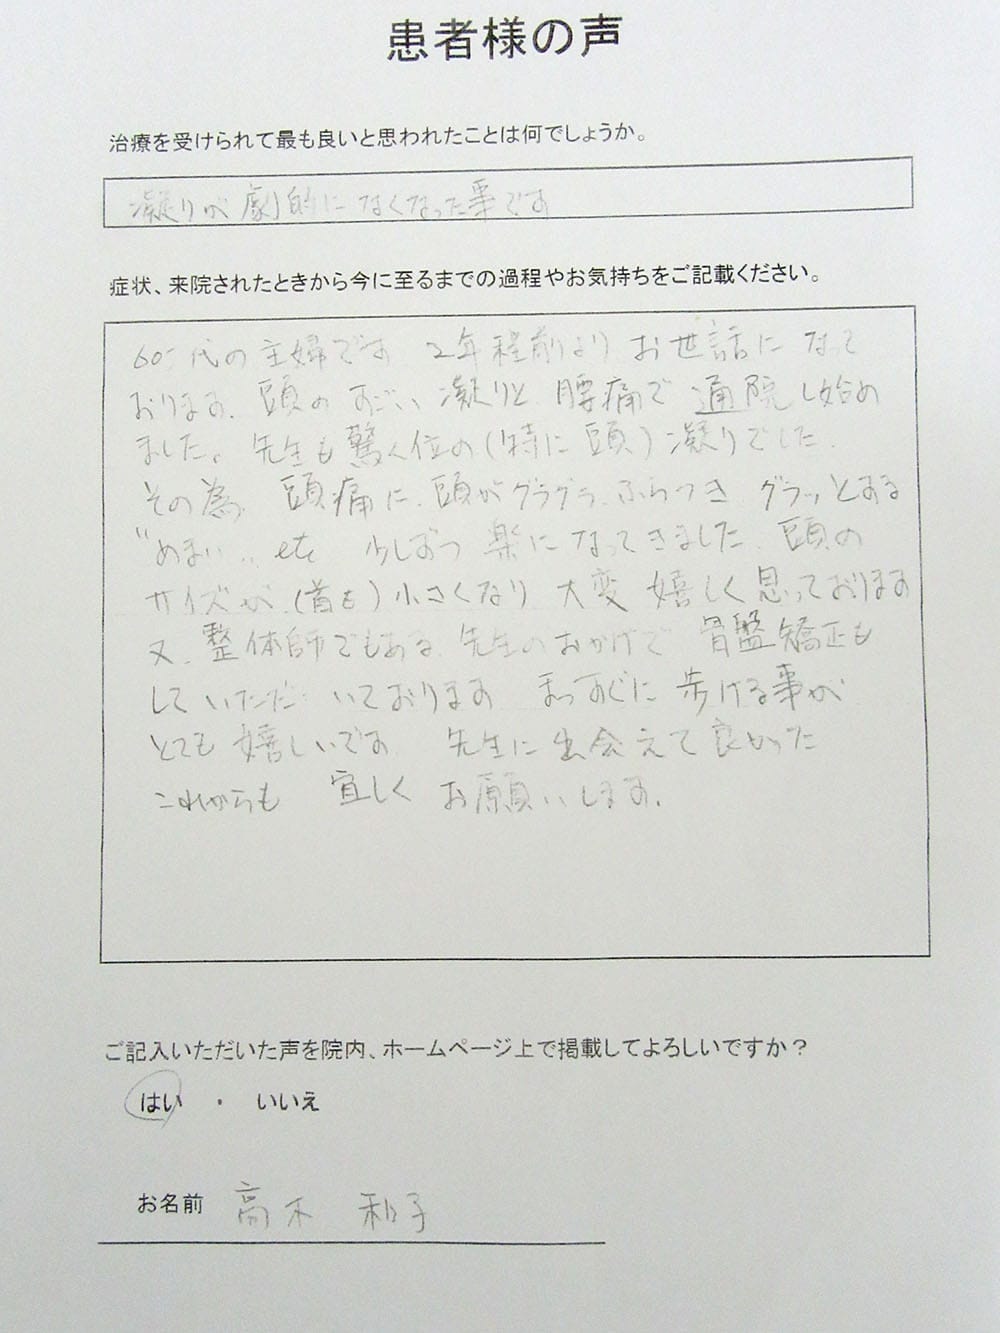 患者様の声
治療を受けられて最も良いと思われたことは何でしょうか。
凝りが劇的になくなった事です
症状、来院されたときから今に至るまでの過程やお気持ちをご記載ください。
60代の主婦です 2年程前より お世話になって
おります。頭の すごい 凝りと 腰痛で 通院し始め
ました。先生も驚く位の(特に頭)凝りでした。
その為 頭痛に、頭がグラグラ、ふらつき グラッとする
"めまい".. etc 少しずつ 楽になってきました、頭の
サイズが、(首も)小さくなり 大変 嬉しく思っております
又、整体師でもある、先生のおかげで 骨盤矯正も
していただいております まっすぐに 歩ける事が
とても 嬉しいです 先生に出会えて良かった
これからも 宜しく お願いします。
ご記入いただいた声を院内、ホームページ上で掲載してよろしいですか？
はい ・ いいえ
お名前 高木 和子